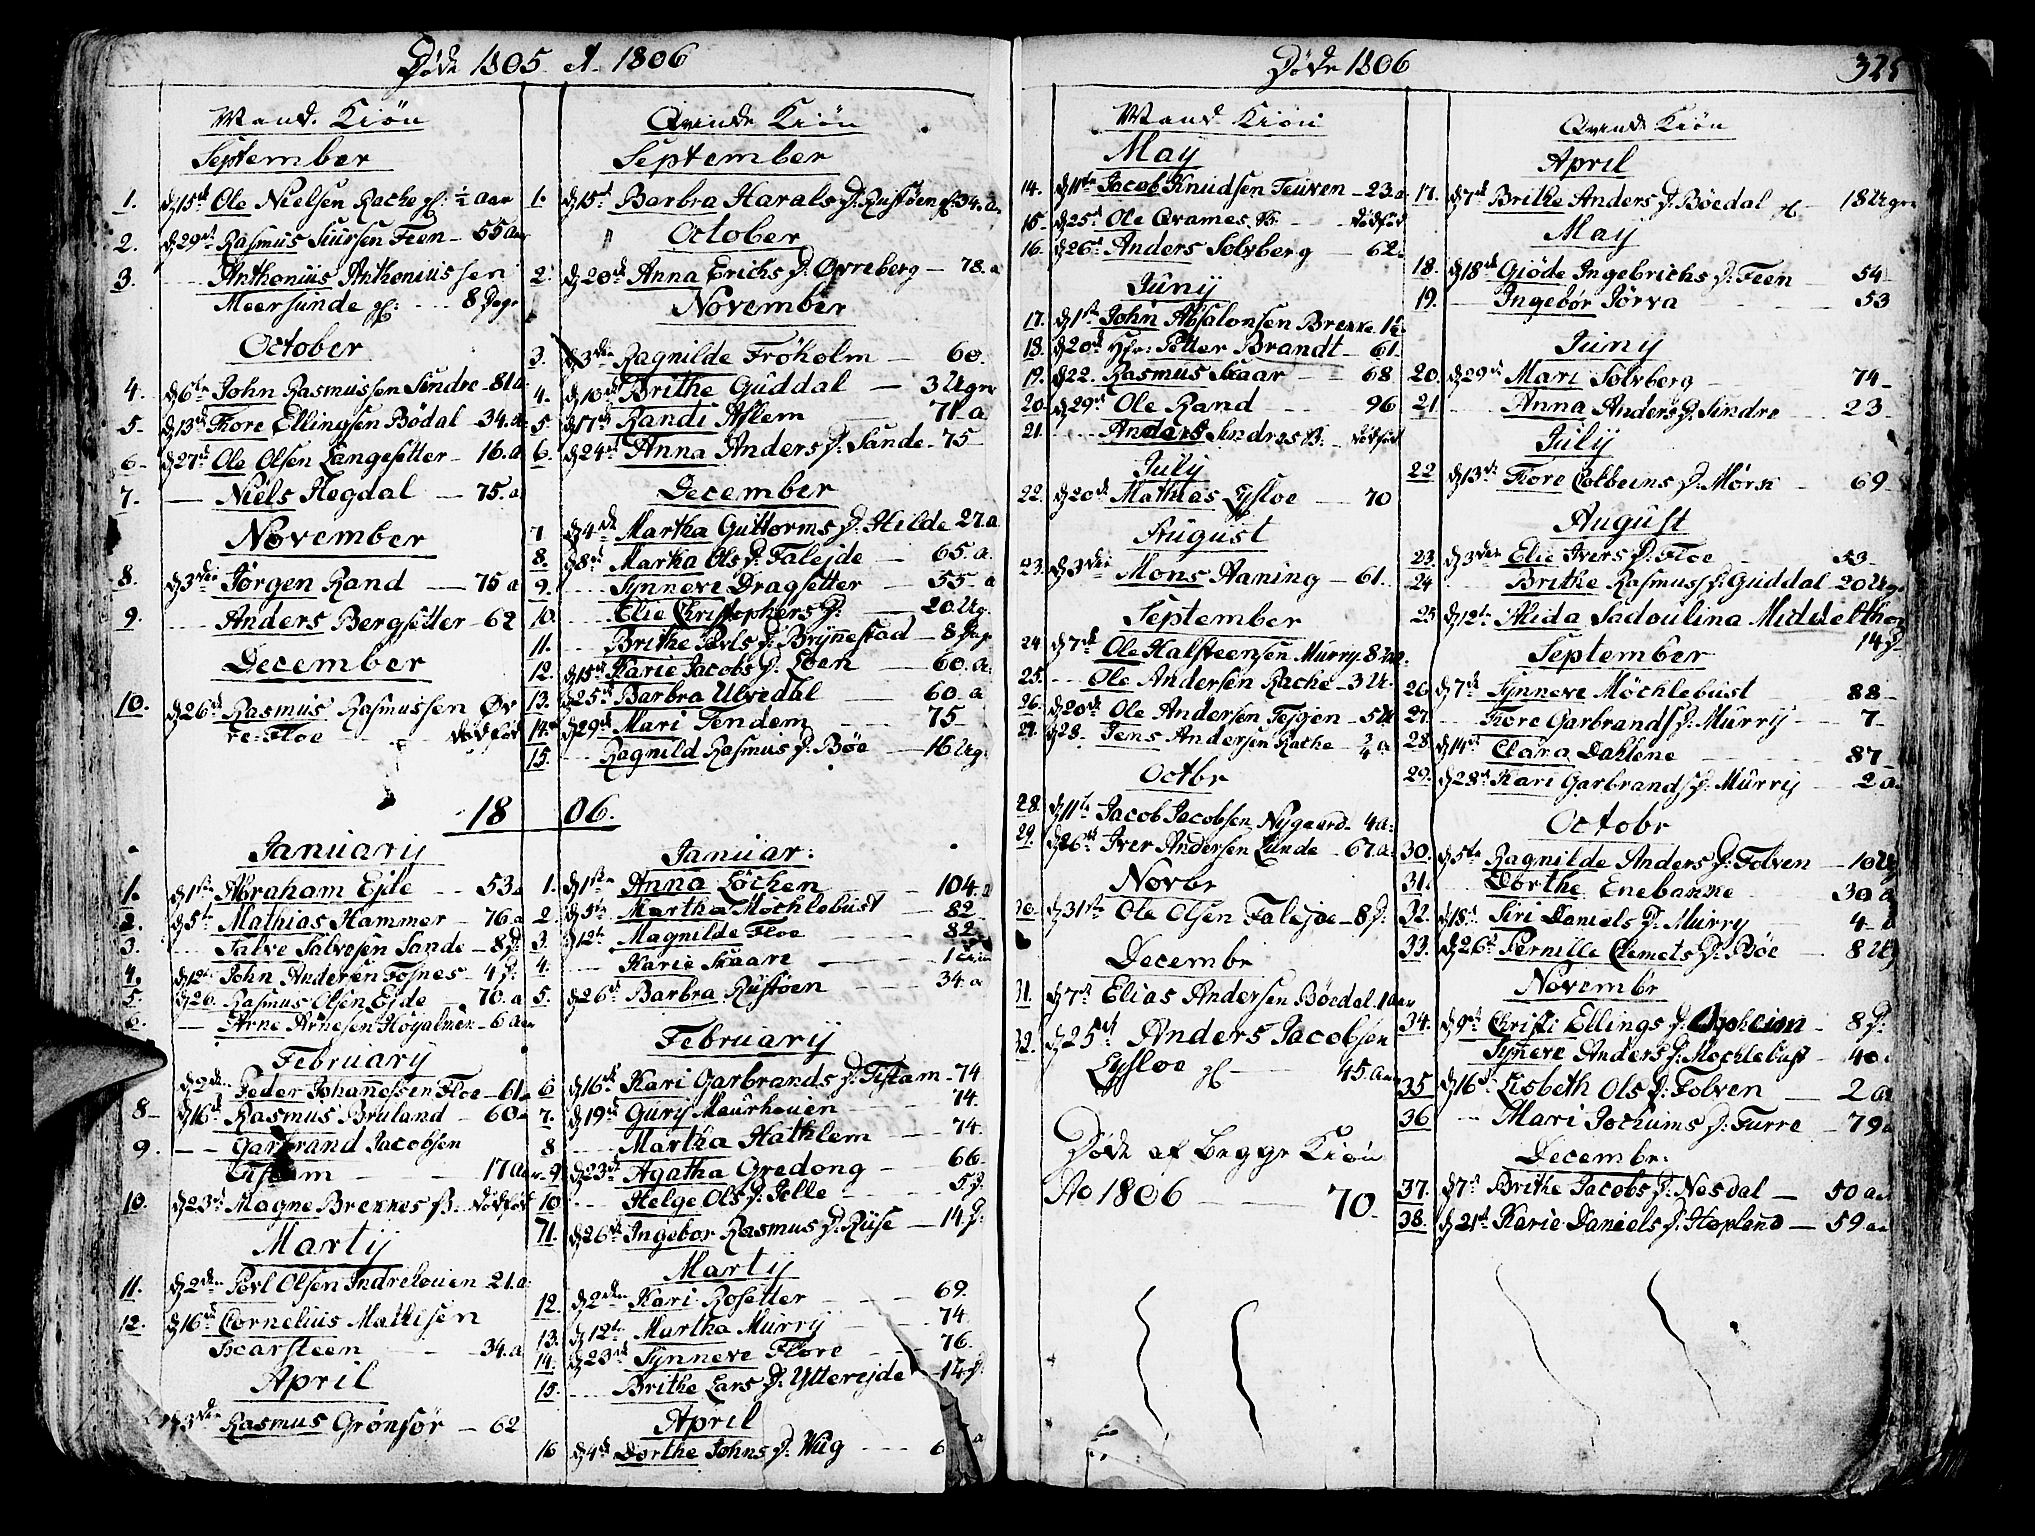 Døde 1805 et 1806
Mand Kiøn
September
1. d 15de Ole Nielsen Rache gl: ½ aar
2. d 29de Rasmus Siursen Feen - 55 aar
3. Anthonius Anthoniussen
Meersunde gl: - - 8 Dage
October
4. d 6te John Rasmussen Sindre - 81 a
5. d 13de Tore Ellingsen Bødal - 34. a
6. d 27de Ole Olsen Langesetter - 16. a
7. — Niels Hegdal — 75. a
November
8. d 3die Jørgen Rand — 75 a
9. — Anders Bergsetter - 62
December
10. d 26de Rasmus Rasmussen Øv
re-Floe - - dødfød
1806.
Januarij
1. d 1ste Abraham Ejde - - 53 a
2. d 5te Mathias Hammer - 76. a
3. — Salve Salvesen Sande - 8 D.
4. d 12te John Andersen Fosnes - 4 D.
5. d 26. Rasmus Olsen Ejde — 70. a
6. — Arne Arnesen Høyalmen - 6 aar
Februarij
d 2den Peder Johannessen Floe - 61 a
8 - d 16de Rasmus Bruland - 60 a
9. - - Garbrand Jacobsen
Tistam - - 17 aar
10. d 23de Magne Brennes B: dødfød
Martij
11. d 2den Povl Olsen Indrehouen 21. a
12. d 16de Cornelius Mathisen
Scarsteen - - 34. a
April
d 3die Rasmus Grønsør - 62
Qvinde Kiøn
September
1. d 15de Barbra Harals D. Rustøen gl. 34. a
October
2. d 20de Anna Erichs D. Øvreberg - 78. a
November
3. d 3die Ragnilde Frøholm — 60.
4. d 10de Brithe Guddal — 3 Uger
5. d 17de Randi Aslem — 71. a
6. d 24de Anna Anders D. Sande - 75
December
7 d 4de Martha Guttorms D. Hilde 27. a
8. d 8de Martha Ols D. Falejde — 65. a.
9. - - Synneve Dragsetter — 55 a
10. - - Elie Christophers D. — 20 Ug.
11. - - Brithe Povls D. Brynnestad - 8 Dag
12. d 15de Karie Jacobs D. Loen — 60. a.
13. d 25de Barbra Ulvedal — 60. a
14. d 29de Mari Tendem - - 75
15. - - Ragnild Rasmus D. Bøe — 16 Ug.
Januar:
1. d 1ste Anna Løchen — 104. a
2. d 5te Martha Mochlebust — 82
3. d 12te Magnilde Floe - - 82
4. — Karie Skaare —
5. d 26de Barbra Rustøen - 34. a
Februarij
6 d 16de Kari Garbrands D. Tistam - 74
7. d 19de Gury Maurhouen - - 74.
8 - - Martha Hathlem — 74
9. d 23de Agatha Gredong — 66
10 - - Helge Ols D. Jelle - - 5 D.
11. d 26de Ingebor Rasmus D. Ryse - 14 D.
Martij
12. d 2den Kari Rosetter — 69.
13. d 12te Martha Murry - - 74
14. d 23de Synneve Flore - - 76.
15. - - Brithe Lars D. Ytterejde - 14 D.
April
16 d 4de Dorthe Johns D. Wiig - - - 6 a
Døde 1806
Mand Kiøn
May
14. d 11te Jacob Knudsen Teuven - 23. a
15 - d 25de Ole Qvames B. - dødfød
16. d 26de Anders Solvberg - 62.
Juny
17. d 1ste John Absalonsen Brekke 12
18. d 20de Hr: Petter Brandt - 61.
19. d 22. Rasmus Skaar - - 68
20. d 29de Ole Rand - - 96
21 - - Anders Sindres B. - dødfød
July
22. d 20de Mathias Lysloe - - 70
August
23. d 3die Mons Aaning - 61.
September
24 d 7de Ole Halsteensen Murry 8
25. - - Ole Andersen Rache - 3 U.
26. d 20de Ole Andersen
27. d 28. Jens Andersen Rache ¾ a
Octbr
28. d 11te Jacob Jacobsen Nygaard - 4 a.
29. d 26de Iver Andersen Lunde - 67. a.
Novbr
30. d 31te Ole Olsen Falejde - 8 D.
Decembr
31. d 7de Elias Andersen Bøedal. 1 aar
32. d 25de Anders Jacobsen
Lysloe gl — 45. Aar
Døde af begge Kiøn
Ao 1806 — 70.
325
Qvinde Kiøn
April
17. d 7de Brithe Anders D. Bøedal gl - 18 Uger
May
18. d 18de Giøde Ingebrichs D. Feen - 54 -
19. — Ingebør Jørva - - 53
Juny
20. d 29de Mari Solvberg - - 74 -
21. - - Anna Anders D. Sindre - 23
July
22 d 13de Tore Colbeins D. Mørk - 69 -
August
23. d 3die Elie Ivers D. Floe - 53 -
24 Brithe Rasmuss D. Guddal - 20 Uge
25 d 12te Alida Sadoulina Middelthon
14 D.
September
26. d 7de Synneve Møchlebust - 88 -
27. - Tore Garbrands D. Murry - - 7 -
28. d 14de Clara Dahlene - - 87 -
29. d 28de Kari Garbrands D. Murry - - 2 a.
Octobr
30. d 5te Ragnilde Anders D. Folven - 10 Ug
31. - Dorthe Enebanne — 30 a
32. d 18de Siri Daniels D. Murry - 4 - a
33. d 26de Pernille Clemets D. Bøe - 8 Ug
Novembr
34. d 9de Christi Ellings D. - 8 D.
Synneve Anders D. Mochlebust - 40
35 d 16de Lisbeth Ols D. Folven — 2 a
36 - - Mari Jochums D. Furre - 79 a
Decembr:
37. d 7de Brithe Jacobs D. Nesdal — 50 aar
38. d 21de Karie Daniels D. Hoplend — 59 aar